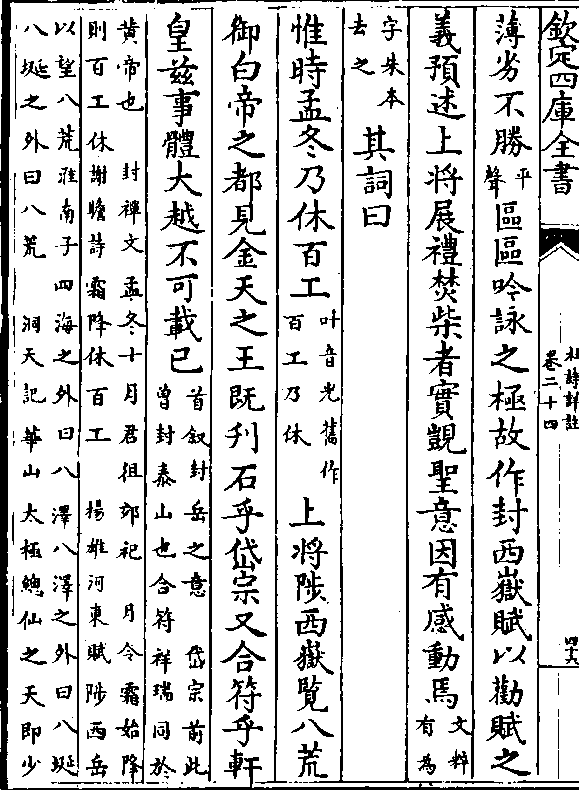 欽定四庫全書
杜詩詳註
卷二十四
四六
薄劣不勝平聲區區吟詠之極故作封西嶽賦以勸賦之
義預述上將展禮焚柴者實覬聖意因有感動焉文粹有為
字朱本去之
其詞曰
惟時孟冬乃休百工叶音光舊作百工乃休上將陟西嶽覽八荒
御白帝之都見金天之王既刋石乎岱宗又合符乎軒
皇兹事體大越不可載已首叙封岳之意 岱宗前此曾封泰山也合符祥瑞同於
黄帝也 封禪文 孟冬十月君徂郊祀 月令霜始降
則百工休謝瞻詩霜降休百工 楊雄河東賦陟西岳
以望八荒淮南子四海之外曰八澤八澤之外曰八埏
八埏之外曰八荒 洞天記華山太極總仙之天即少